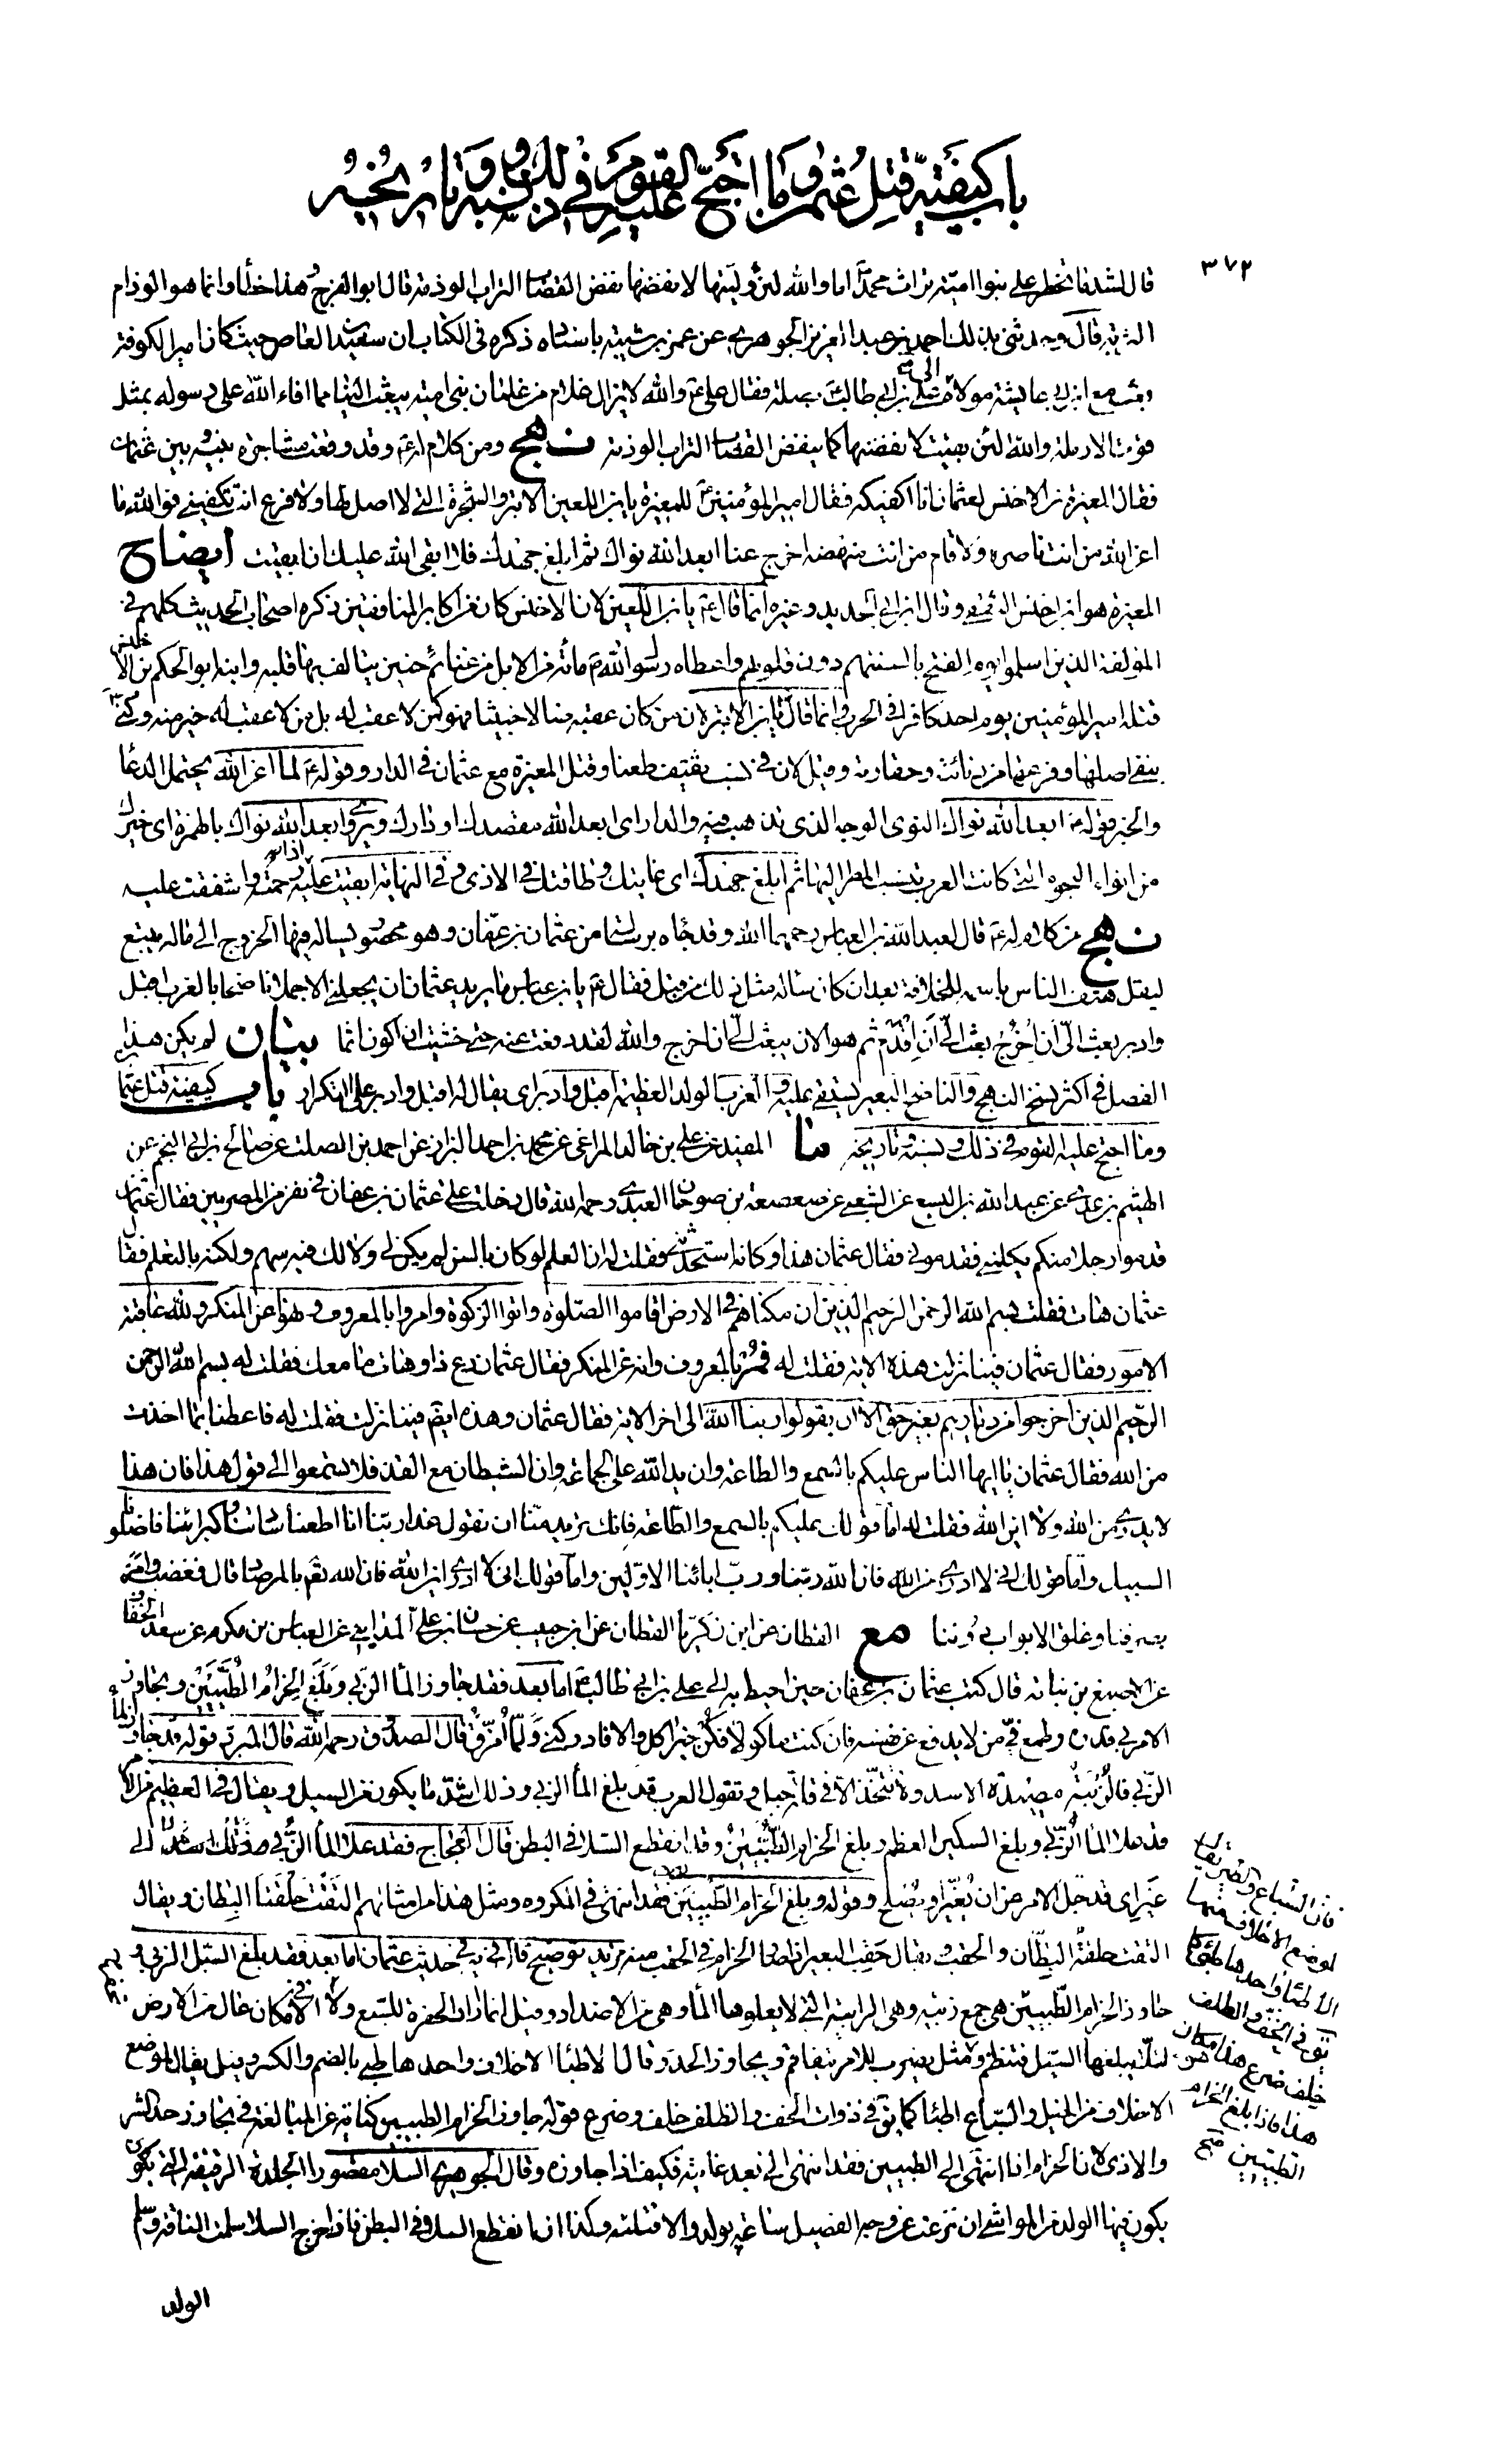 باب كيفية قتل عثمان وما احتج عليه القوم في ذلك ونسبه وتاريخه
٣٧٢
قال لشد ما تخطر على بنوا امية تراث محمد اما والله لئن وليتها لانفضنها نفض القصاب التراب الوذمة قال ابو الفرج هذا خطأ وانما هو الوذام
التربة قال وحدثني بذلك احمد بن عبد العزيز الجوهري عن عمر بن شبة باسناده ذكره في الكتاب ان سعيد بن العاص حيث كان امير الكوفة
بعث مع ابن ابي عايشة مولاه الى علي بن ابي طالب ع بصلة فقال علي ع والله لا يزال غلام من غلمان بني امية يبعث الينا مما افاء الله على رسوله بمثل
قوت الارملة والله لئن بقيت لانفضنها كما ينفض القصاب التراب الوذمة نهج ومن كلام له ع وقد وقعت مشاجرة بينه وبين عثمان
فقال المغيرة بن الاخنس لعثمان انا اكفيكه فقال امير المؤمنين ع للمغيرة يابن اللعين الابتر والشجرة التي لا اصل لها ولا فرع انت تكفيني فوالله ما
اعز الله من انت ناصره ولا قام من انت منهضه اخرج عنا ابعد الله نواك ثم ابلغ جهدك فلا ابقى الله عليك ان ابقيت ايضاح
المغيرة هو ابن اخنس الثقفي وقال ابن ابي الحديد وغيره انما قال ع يابن اللعين لان الاخنس كان من اكابر المنافقين ذكره اصحاب الحديث كلهم في
المؤلفة الذين اسلموا يوم الفتح بالسنتهم دون قلوبهم واعطاه رسول الله ص مائة من الابل من غنائم حنين يتالف بها قلبه وابنه ابو الحكم بن الاخنس
قتله امير المؤمنين يوم احد كافرا في الحرب وانما قال يابن الابتر لان من كان عقبه ضالا خبيثا فهو كمن لا عقب له بل من لا عقب له خير منه وكنى ع
بنفي اصلها وفرعها من دنائته وحقارته وقيل لان في نسب ثقيف طعنا وقتل المغيرة مع عثمان في الدار وقوله ع لما اعز الله يحتمل الدعاء
والخبر قوله ع ابعد الله نواك النوى الوجه الذي تذهب فيه والدار اي ابعد الله مقصدك او دارك ويروى ابعد الله نواك بالهمزة اي خيرك
من انواء النجوم التي كانت العرب تنسب المطر اليها ثم ابلغ جهدك اي غايتك وطاقتك في الاذى وفي النهاية ابقيت عليه اذا رحمته واشفقت عليه
نهج من كلام له ع قال لعبد الله بن العباس رحمهما الله وقد جاءه برسالة من عثمان بن عفان وهو محصور يساله فيها الخروج الى ماله بينبع
ليقل هتف الناس باسمه للخلافة بعد ان كان ساله مثل ذلك من قبل فقال ع يابن عباس ما يريد عثمان ان يجعلني الا جملا ناضحا بالغرب اقبل
وادبر بعث الي ان اخرج ثم بعث الي ان اقدم ثم هو الان يبعث الي ان اخرج والله لقد دفعت عنه حتى خشيت ان اكون اثما بيان لم يكن هذا
الفصل في اكثر نسخ النهج والناضح البعير يستقى عليه والغرب الدلو العظيمة اقبل وادبر اي يقال له اقبل وادبر على التكرار باب كيفية قتل عثمان
وما احتج عليه القوم في ذلك ونسبه وتاريخه ما المفيد عن علي بن خالد المراغي عن محمد بن احمد البزاز عن احمد بن الصلت عن صالح بن ابي النجم عن
الهيثم بن عدي عن عبد الله بن اليسع عن الشعبي عن صعصعة بن صوحان العبدي رحمه الله قال دخلت على عثمان بن عفان في نفر من المصريين فقال عثمان
قدموا رجلا منكم يكلمني فقدموني فقال عثمان هذا وكانه استحدثني فقلت له ان العلم لو كان بالسن لم يكن لي ولا لك فيه سهم ولكنه بالتعلم فقال
عثمان هات فقلت بسم الله الرحمن الرحيم الذين ان مكناهم في الارض اقاموا الصلوة واتوا الزكوة وامروا بالمعروف ونهوا عن المنكر ولله عاقبة
الامور فقال عثمان فينا نزلت هذه الاية فقلت له فمر بالمعروف وانه عن المنكر فقال عثمان دع ذا وهات ما معك فقلت له بسم الله الرحمن
الرحيم الذين اخرجوا من ديارهم بغير حق الا ان يقولوا ربنا الله الى اخر الاية فقال عثمان وهذه ايضم فينا نزلت فقلت له فاعطنا بما اخذت
من الله فقال عثمان يا ايها الناس عليكم بالسمع والطاعة وان يد الله على الجماعة وان الشيطان مع الفذ فلا تستمعوا الى قول هذا فان هذا
لا يدري من الله ولا اين الله فقلت له اما قولك عليكم بالسمع والطاعة فانك تريد منا ان نقول غدا ربنا انا اطعنا سادتنا وكبرائنا فاضلونا
السبيل واما قولك اني لا ادري من الله فان الله ربنا ورب ابائنا الاولين واما قولك اني لا ادري اين الله فان الله تعم بالمرصاد قال فغضب وامر
بصرفنا وغلق الابواب دوننا مع القطان عن ابن زكريا القطان عن ابن حبيب عن حسان بن علي المدايني عن العباس بن مكرم عن سعد الخفاف
عن الاصبغ بن نباته قال كتب عثمان بن عفان حين احيط به الى علي بن ابي طالب ع اما بعد فقد جاوز الماء الزبى وبلغ الحزام الطبيين وتجاوز
الامر بي قدره وطمع في من لا يدفع عن نفسه فان كنت ماكولا فكن خير اكل والا فادركني ولما امزق قال الصدوق رحمه الله قال المبرد قوله قد جاوز الماء
الزبى فالزبية مصيدة الاسد ولا تتخذ الا في قلة جبل وتقول العرب قد بلغ الماء الزبى وذلك اشد ما يكون من السيل ويقال في العظيم من الامر
قد علا الماء الزبى وبلغ السكين العظم وبلغ الحزام الطبيين وقد انقطع السلا في البطن قال العجاج فقد علا الماء الزبى الى
غير اي قد جل الامر عن ان يغير او يصلح وقوله وبلغ الحزام الطبيين فقد انتهى في المكروه ومثل هذا من امثالهم التقت حلقتا البطان ويقال
التقت حلقة البطان والحقب ويقال حقب البعير اذا صار الحزام في الحقب منه مزيد توضيح قال في يه في حديث عثمان اما بعد فقد بلغ السيل الزبى و
جاوز الحزام الطبيين هي جمع زبية وهي الرابية التي لا يعلوها الماء وهي من الاضداد وقيل انما اراد الحفرة للسبع ولا تحفر الا في مكان عال من الارض
لئلا يبلغها السيل فتنطم وهو مثل يضرب للامر يتفاقم ويجاوز الحد وقال الاطباء الاخلاف واحدها طبي بالضم والكسر وقيل يقال لموضع
الاخلاف من الخيل والسباع اطباء كما يق في ذوات الخف والظلف خلف وضرع قوله جاوز الحزام الطبيين كناية عن المبالغة في تجاوز حد الشر
والاذى لان الحزام اذا انتهى الى الطبيين فقد انتهى الى بعد غايته فكيف اذا جاوزه وقال الجوهري السلا مقصورا الجلدة الرقيقة التي يكون
يكون فيها الولد من المواشي ان نزعت عن وجه الفصيل ساعة يولد والا قتلته وكذا اذا انقطع السلا في البطن فاذا خرج السلا سلمت الناقة وسلم
الولد
فان السباع والطير يقال
لموضع الاخلاف منها
الاطباء واحدها طبي كما
يق في الخف والظلف
خلف ضرع هذا مكان
هذا فاذا بلغ الحزام
الطبيين صح